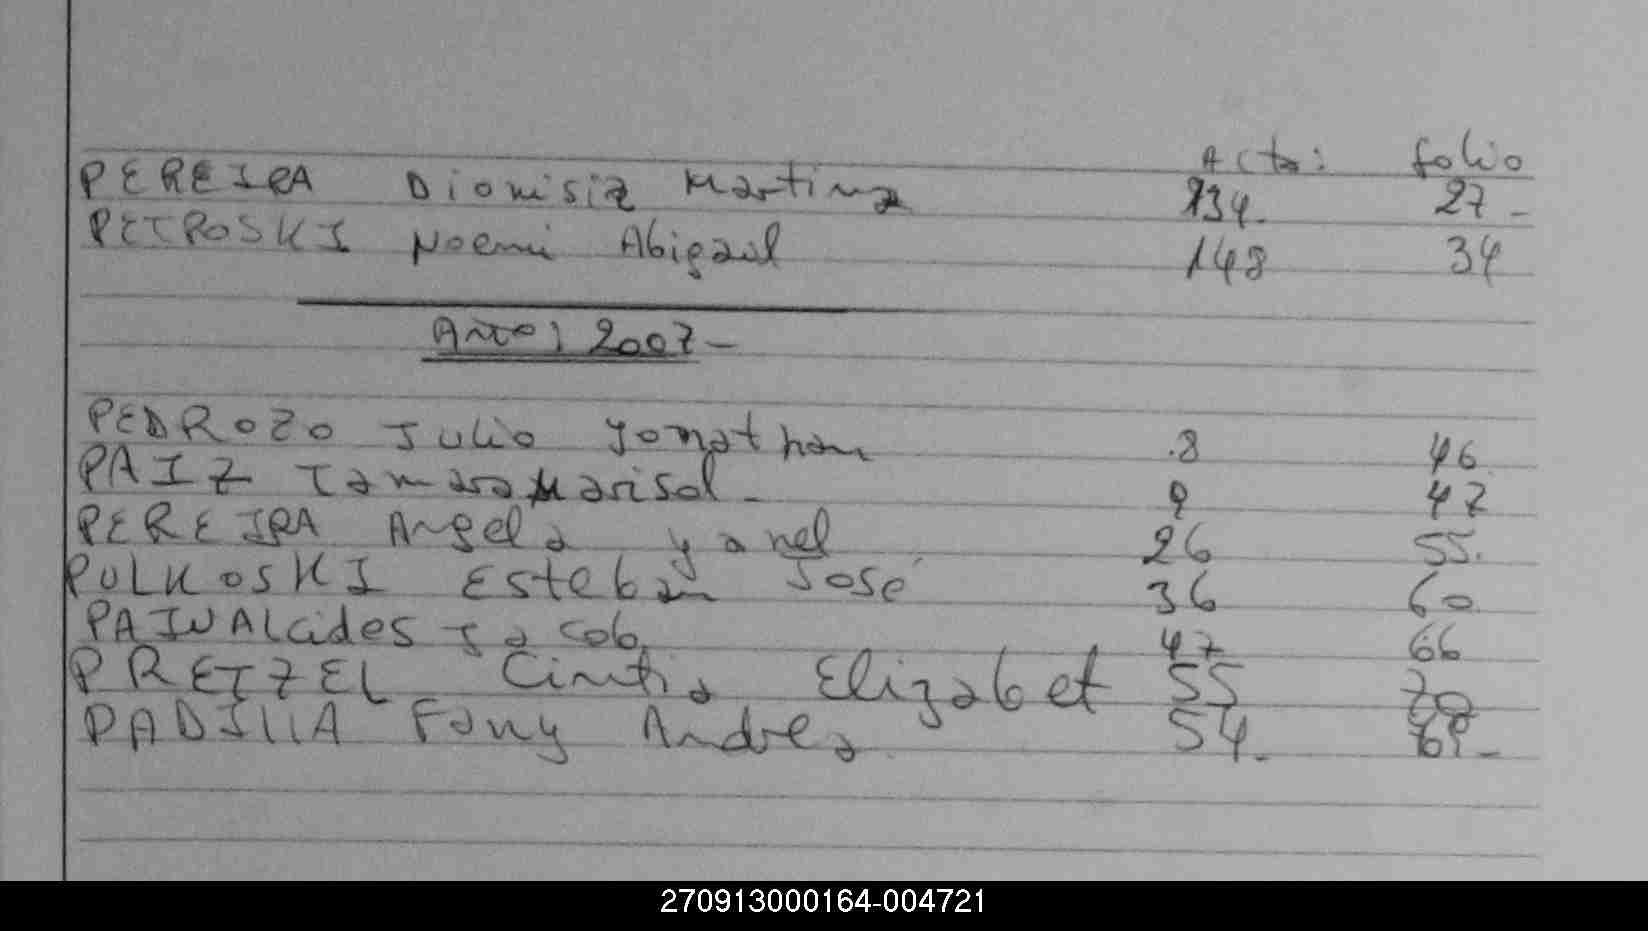 Acta: folio
PEREIRA Dionisia Martina 134. 27-
PETROSKI Noemi Abigail 148 34
Año: 2007-
PEDROZO Julio Yonathan .8 46
PAIZ Tamara Marisol - 9 47
PEREIRA Angela yanel 26 55.
PULKOSKI Esteban José 36 60
PAIN Alcides Jacob 47 66
PRETZEL Cintia Elizabet 55 70
PADILLA Fany Andrea 54.
270913000164-004721